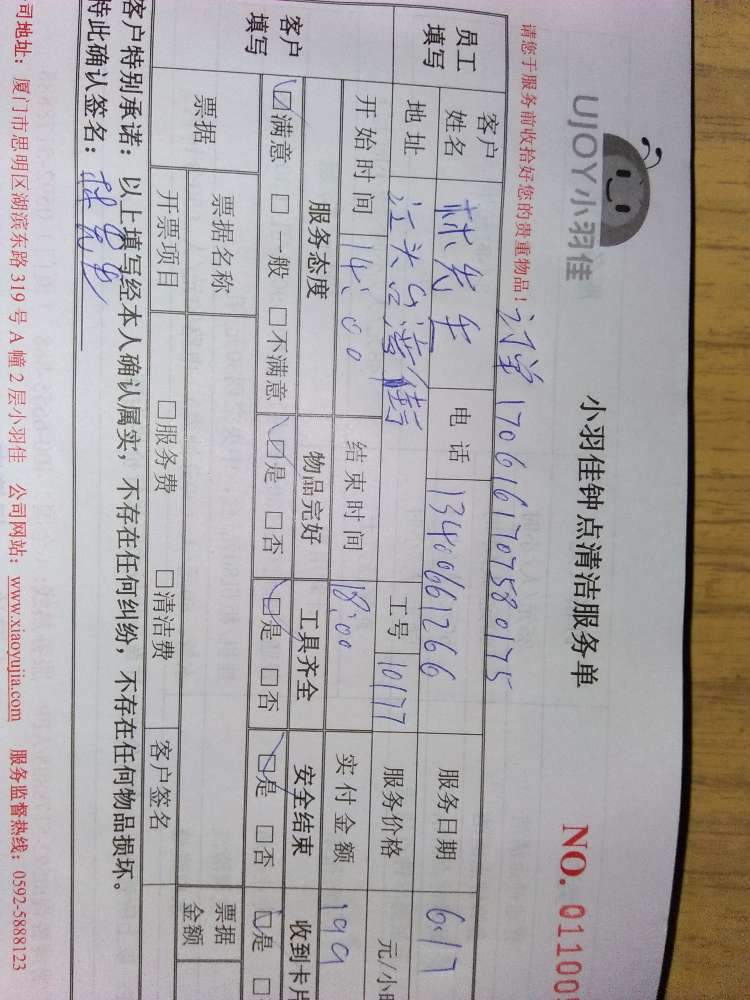 UJOY小羽佳
小羽佳钟点清洁服务单
NO. 01100
请您于服务前收拾好您的贵重物品！
订单1706161707580175
员工填写 客户姓名 林先生 电话 13400661266 服务日期 6.17
地址 江头台湾街 工号 10177 服务价格 元/小时
开始时间 14:00 结束时间 18:00 实付金额 199
客户填写 服务态度 物品完好 工具齐全 安全结束 收到卡片
☑满意 □一般 □不满意 ☑是 □否 ☑是 □否 ☑是 □否 ☑是 □
票据 票据名称 票据金额
开票项目 □服务费 □清洁费 客户签名
客户特别承诺：以上填写经本人确认属实，不存在任何纠纷，不存在任何物品损坏。
特此确认签名：
司地址：厦门市思明区湖滨东路319号A幢2层小羽佳 公司网站：www.xiaoyujia.com 服务监督热线：0592-5888123